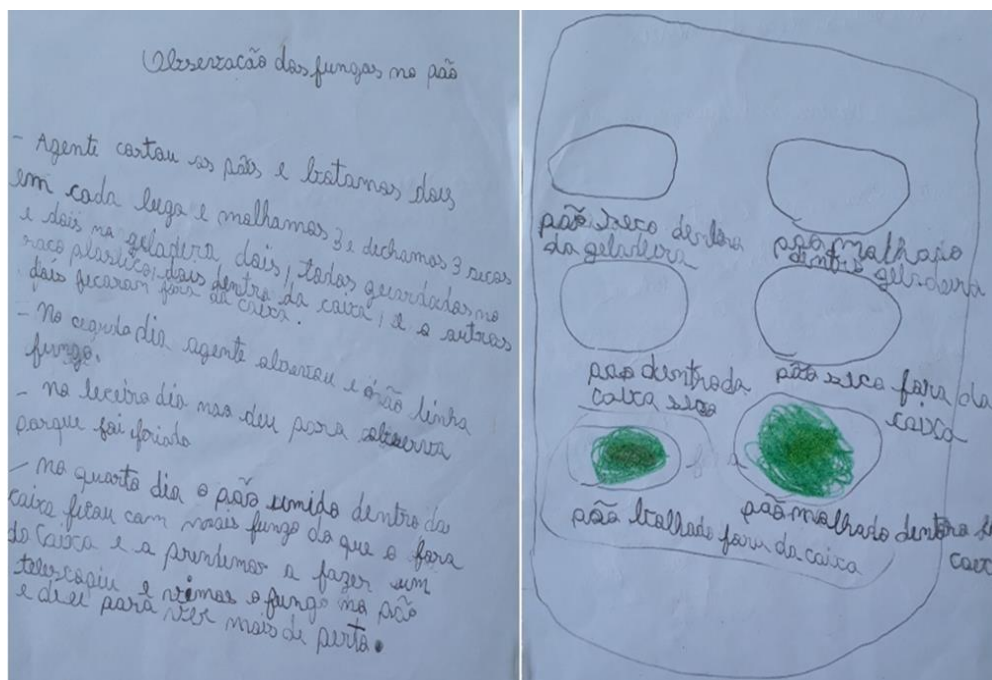 Obserracão dos fungos no pão
- Agente cortou os pães e botamos dois
em cada luga e molhamos 3 e dechamos 3 secos
e dois na geladera dois, todos guardados no
saco plastico, dois dentro da caixa, e o outros
dois ficaram fora da caixa.
- No segudo dia agente obserou e não tinha
fungo.
- no terceiro dia nao deu para observa
porque foi feriado
- no quarto dia o pão umido dentro da
caixa ficou com mais fungo do que o fora
da Caixa e a prendemos a fazer um
telescopiu e vimos o fungo no pão
e deu para ver mais de perto.
pão seco dentro
da geladeira
pão molhado
dentro geladeira
pao dentro da
caixa seco
pão seco fora da
caixa
pão molhado fora da caixa
pão molhado dentro
caix